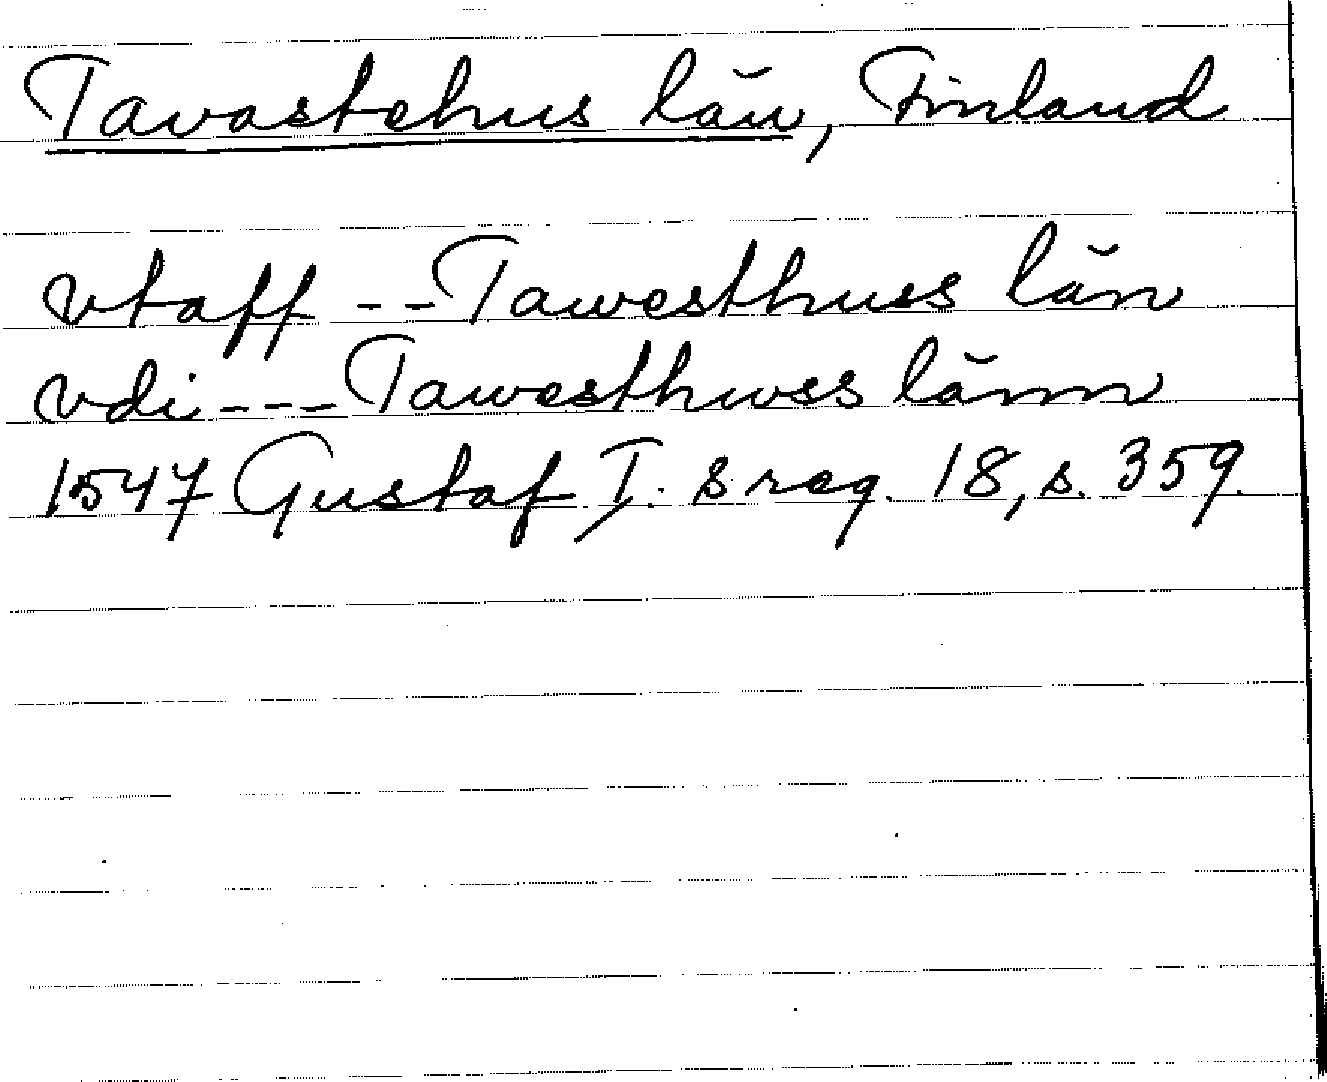 Tavastehus län, Finland
vtaff -- Tawesthuss län
vdi --- Tawesthwss länn
1547 Gustaf I. s reg. 18, s. 359.